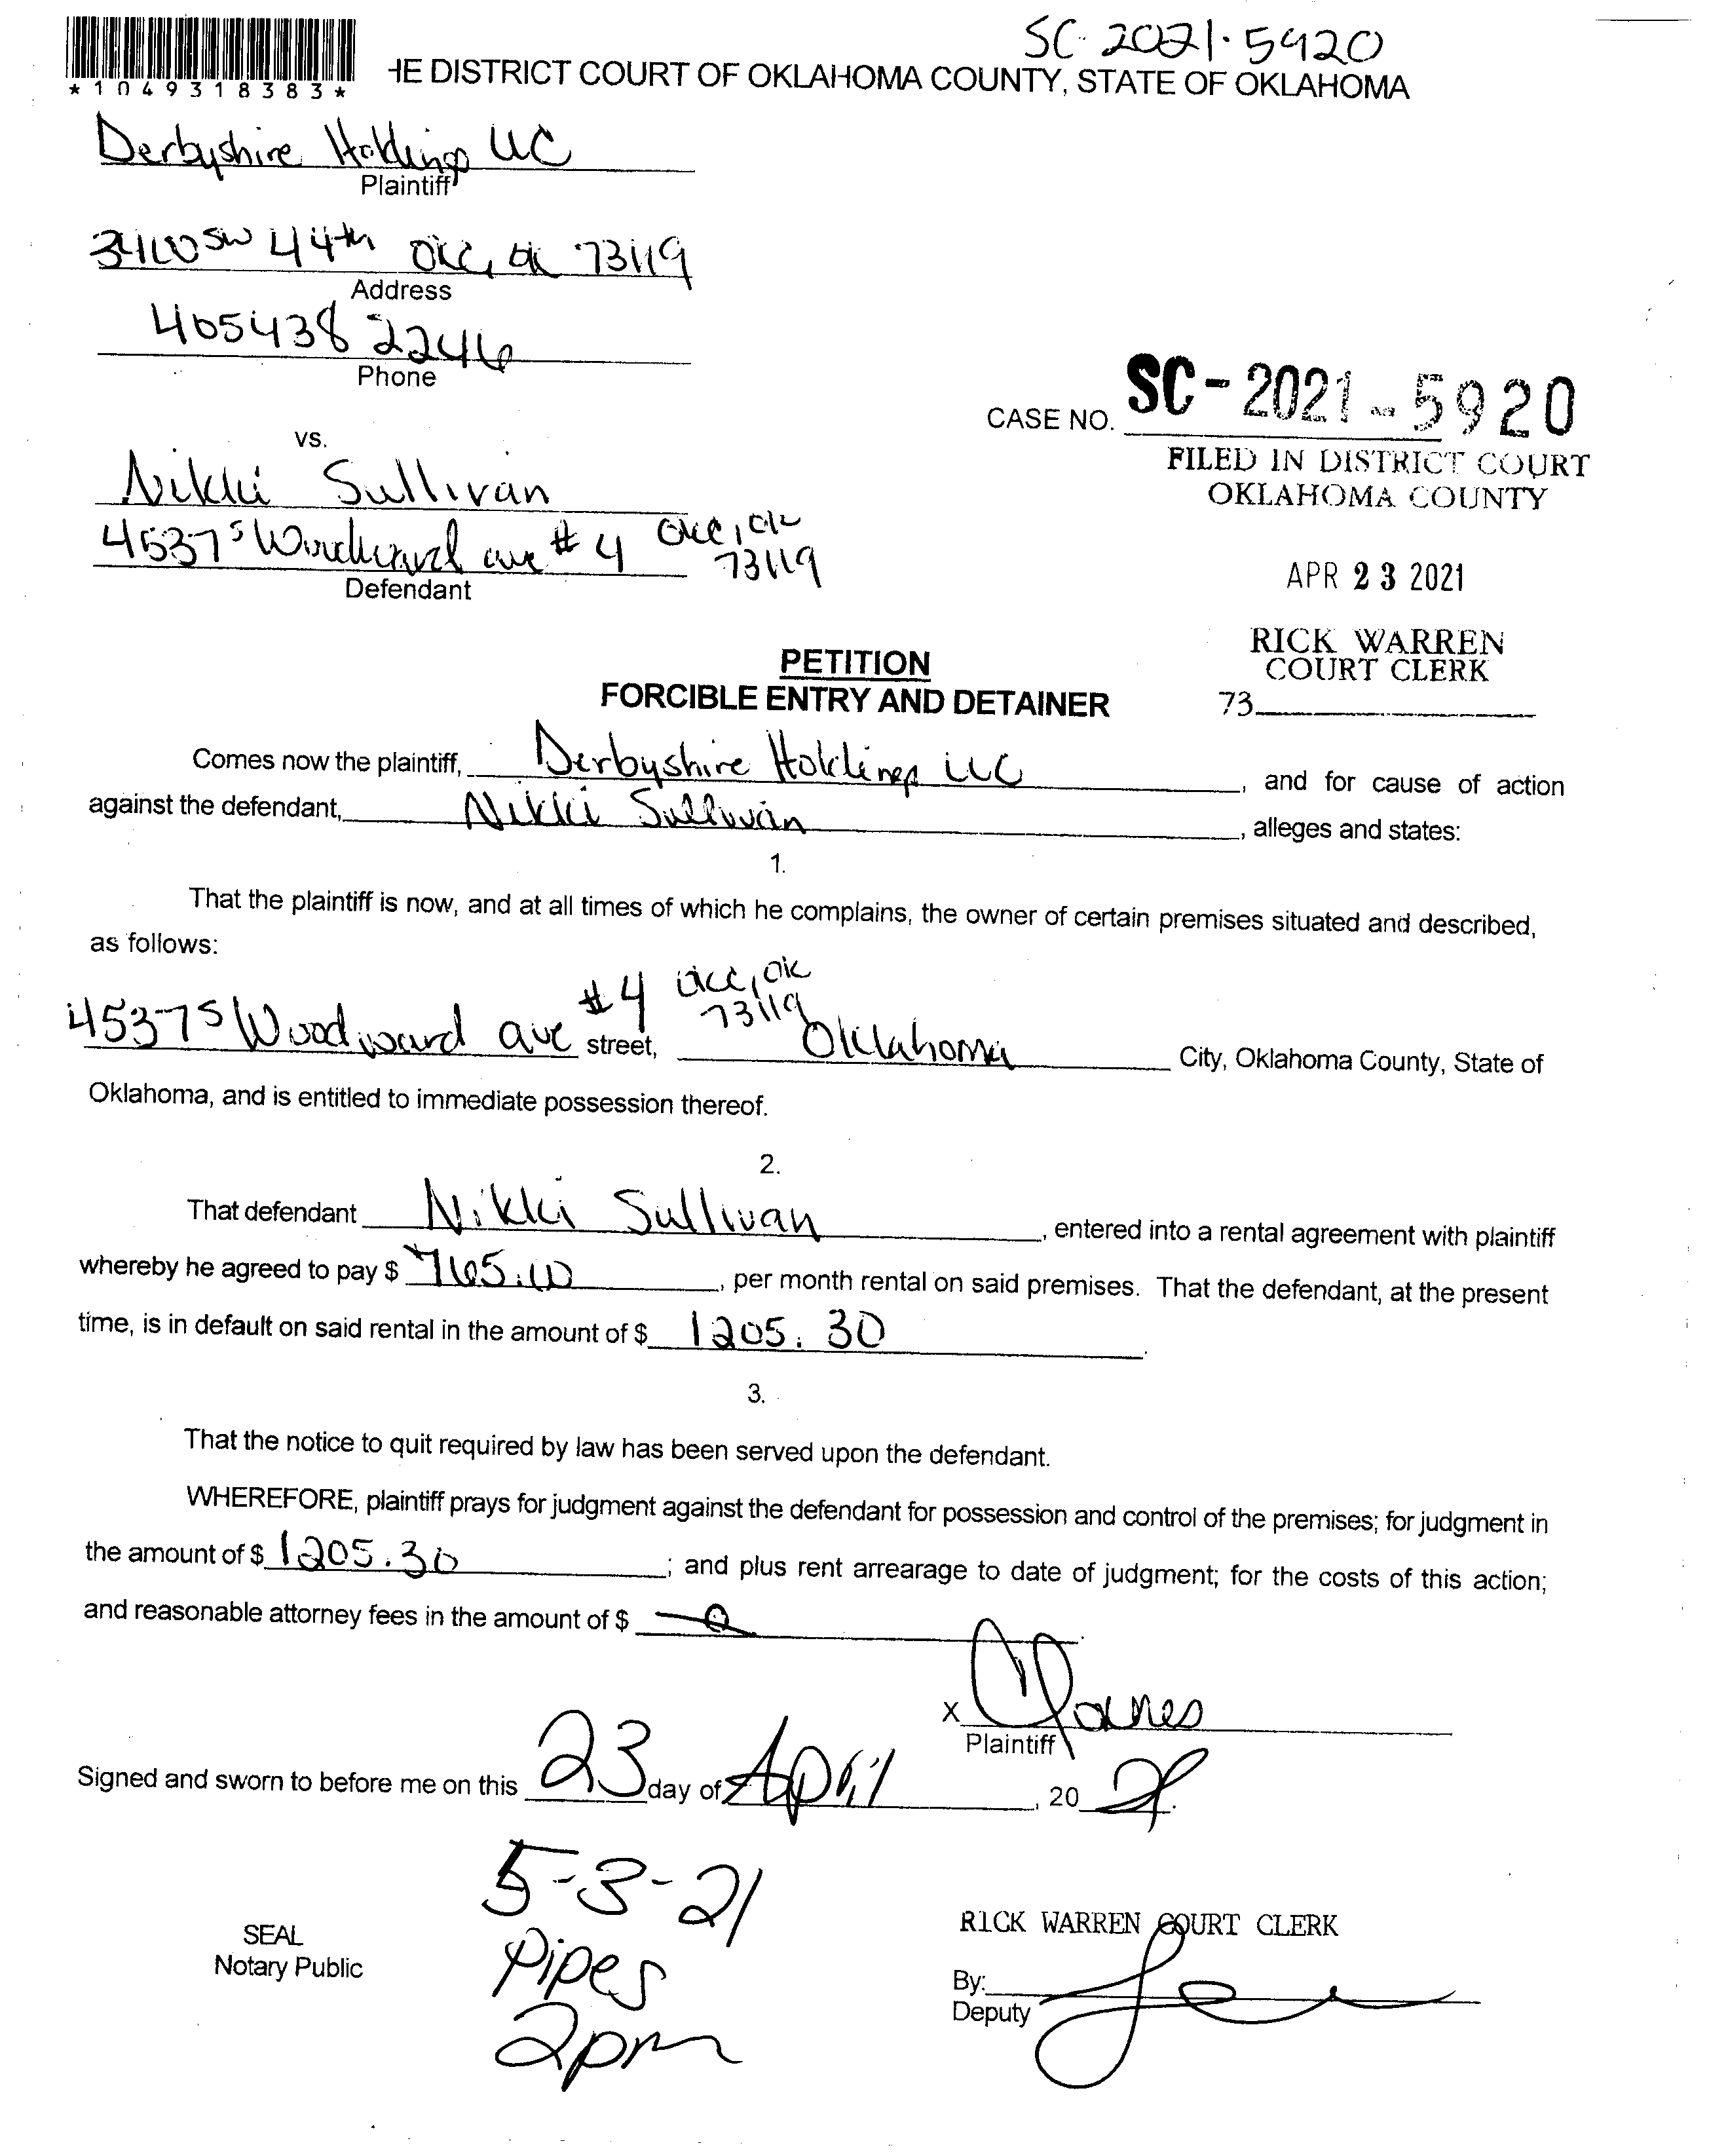 SC-2021-5920
*1049318383*
HE DISTRICT COURT OF OKLAHOMA COUNTY, STATE OF OKLAHOMA
Derbyshire Holdings LLC
Plaintiff
SW 44th OKC, OK 73119
Address
405 438 2246
Phone
CASE NO. SC-2021-5920
vs.
FILED IN DISTRICT COURT
OKLAHOMA COUNTY
Nikki Sullivan
4537 S Woodward ave #4 OKC, OK 73119
Defendant
APR 23 2021
RICK WARREN
COURT CLERK
73
PETITION
FORCIBLE ENTRY AND DETAINER
Comes now the plaintiff, Derbyshire Holdings LLC, and for cause of action
against the defendant, Nikki Sullivan, alleges and states:
1.
That the plaintiff is now, and at all times of which he complains, the owner of certain premises situated and described,
as follows:
4537 S Woodward ave #4 street, OKC, OK 73119 Oklahoma City, Oklahoma County, State of
Oklahoma, and is entitled to immediate possession thereof.
2.
That defendant Nikki Sullivan, entered into a rental agreement with plaintiff
whereby he agreed to pay $ 765.00, per month rental on said premises. That the defendant, at the present
time, is in default on said rental in the amount of $ 1205.30.
3.
That the notice to quit required by law has been served upon the defendant.
WHEREFORE, plaintiff prays for judgment against the defendant for possession and control of the premises; for judgment in
the amount of $ 1205.30; and plus rent arrearage to date of judgment; for the costs of this action;
and reasonable attorney fees in the amount of $ 0.
X
Plaintiff
Signed and sworn to before me on this 23 day of April, 20 21.
5-3-21
Pipes
2pm
SEAL
Notary Public
RICK WARREN COURT CLERK
By:
Deputy